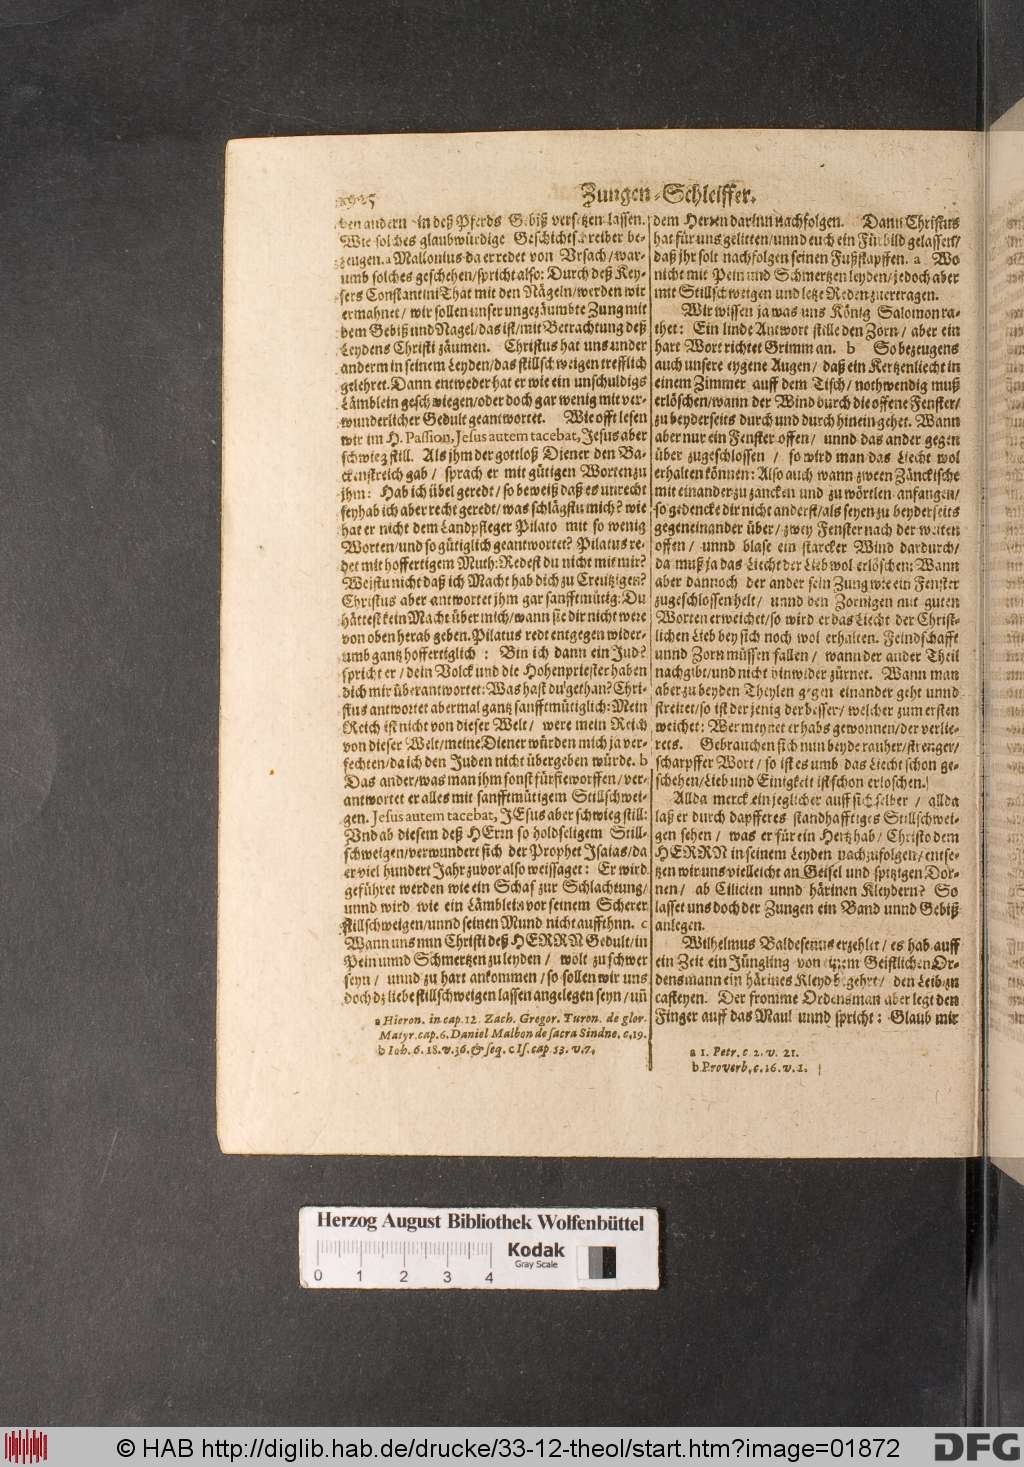 Zungen-Schleiffer.
den andern in deß Pferds Gebiß versetzen lassen.
Wie solches glaubwürdige Geschichtschreiber be-
zeugen. a Mallonius da er redet von Ursach/ war-
umb solches geschehen/ spricht also: Durch deß Key-
sers Constantini That mit den Nägeln/ werden wir
ermahnet/ wir sollen unser ungezäumbte Zung mit
dem Gebiß und Nagel/ das ist/ mit Betrachtung deß
Leydens Christi zäumen. Christus hat uns under
anderm in seinem Leyden/ das stillschweigen trefflich
gelehret. Dann entweder hat er wie ein unschuldigs
Lämblein geschwiegen/ oder doch gar wenig mit ver-
wunderlicher Gedult geantwortet. Wie offt lesen
wir im H. Passion, Jesus autem tacebat, Jesus aber
schwieg still. Als jhm der gottloß Diener den Ba-
ckenstreich gab/ sprach er mit gütigen Worten zu
jhm: Hab ich übel geredt/ so beweiß daß es unrecht
sey hab ich aber recht geredt/ was schlägstu mich? wie
hat er nicht dem Landpfleger Pilato mit so wenig
Worten/ und so gütiglich geantwortet? Pilatus re-
det mit hoffertigem Muth: Redest du nicht mit mir?
Weistu nicht daß ich Macht hab dich zu Creutzigen?
Christus aber antwortet jhm gar sanfftmütig: Du
hättest kein Macht über mich/ wann sie dir nicht were
von oben herab geben. Pilatus redt entgegen wider-
umb gantz hoffertiglich: Bin ich dann ein Jud?
spricht er/ dein Volck und die Hohenpriester haben
dich mir überantwortet: Was hast du gethan? Chri-
stus antwortet abermal gantz sanfftmütiglich: Mein
Reich ist nicht von dieser Welt/ were mein Reich
von dieser Welt/ meine Diener würden mich ja ver-
fechten/ da ich den Juden nicht übergeben würde. b
Das ander/ was man jhm sonst fürgeworffen/ ver-
antwortet er alles mit sanfftmütigem Stillschwei-
gen. Jesus autem tacebat, JEsus aber schwieg still:
Und ab diesem deß HErrn so holdseligem Still-
schweigen/ verwundert sich der Prophet Isaias/ da
er viel hundert Jahr zuvor also weissaget: Er wird
geführet werden wie ein Schaf zur Schlachtung/
unnd wird wie ein Lämblein vor seinem Scherer
stillschweigen/ unnd seinen Mund nicht auffthun. c
Wann uns nun Christi deß HERRN Gedult/ in
Pein unnd Schmertzen zu leyden/ wolt zu schwer
seyn/ unnd zu hart ankommen/ so sollen wir uns
doch dz liebe stillschweigen lassen angelegen seyn/ uñ
a Hieron. in cap. 12. Zach. Gregor. Turon. de glor.
Matyr. cap. 6. Daniel Malbon de sacra Sindne. c. 19.
b Ioh. 6. 18. v. 36. & seq. c Is. cap. 53. v. 7.
dem Herren darinn nachfolgen. Dann Christus
hat für uns gelitten/ unnd euch ein Fürbild gelassen/
daß jhr solt nachfolgen seinen Fußstapffen. a Wo
nicht mit Pein und Schmertzen leyden/ jedoch aber
mit Stillschweigen und letze Reden zuertragen.
Wir wissen ja was uns König Salomon ra-
thet: Ein linde Antwort stille den Zorn/ aber ein
hart Wort richtet Grimm an. b So bezeugens
auch unsere eygene Augen/ daß ein Kertzenliecht in
einem Zimmer auff dem Tisch/ nothwendig muß
erlöschen/ wann der Wind durch die offene Fenster/
zu beyderseits durch und durch hinein gehet. Wann
aber nur ein Fenster offen/ unnd das ander gegen
über zugeschlossen/ so wird man das Liecht wol
erhalten können: Also auch wann zween Zänckische
mit einander zu zancken und zu wörtlen anfangen/
so gedencke dir nicht anderst/ als seyen zu beyderseits
gegeneinander über/ zwey Fenster nach der weiten
offen/ unnd blase ein starcker Wind dardurch/
da muß ja das Liecht der Lieb wol erlöschen: Wann
aber dannoch der ander sein Zung wie ein Fenster
zugeschlossen helt/ unnd den Zornigen mit guten
Worten erweichet/ so wird er das Liecht der Christ-
lichen Lieb bey sich noch wol erhalten. Feindschafft
unnd Zorn müssen fallen/ wann der ander Theil
nachgibt/ und nicht hinwider zürnet. Wann man
aber zu beyden Theylen gegen einander geht unnd
streitet/ so ist der jenig der besser/ welcher zum ersten
weichet: Wer meynet er habs gewonnen/ der verlie-
rets. Gebrauchen sich nun beyde rauher/ strenger/
scharpffer Wort/ so ist es umb das Liecht schon ge-
schehen/ Lieb und Einigkeit ist schon erloschen.
Allda merck ein jeglicher auff sich selber/ allda
laß er durch dapfferes standhafftiges Stillschwei-
gen sehen/ was er für ein Hertz hab/ Christo dem
HERRN in seinem Leyden nachzufolgen/ entse-
tzen wir uns vielleicht an Geisel und spitzigen Dor-
nen/ ab Cilicien unnd härinen Kleydern? So
lasset uns doch der Zungen ein Band unnd Gebiß
anlegen.
Wilhelmus Baldesenus erzehlet/ es hab auff
ein Zeit ein Jüngling von einem Geistlichen Or-
densmann ein härines Kleyd begehrt/ den Leib zu
casteyen. Der fromme Ordensman aber legt den
Finger auff das Maul unnd spricht: Glaub mir
a 1. Petr. c. 2. v. 21.
b Proverb. c. 16. v. 1.
Herzog August Bibliothek Wolfenbüttel
Kodak
Gray Scale
0 1 2 3 4
© HAB http://diglib.hab.de/drucke/33-12-theol/start.htm?image=01872
DFG